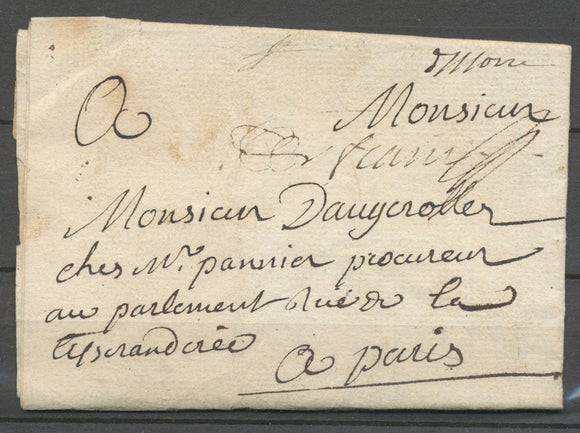 A
Monsieur
Monsieur Daugerolles
ches Mr. pannier procureur
au parlement Rüe de la
Tisseranderie
a paris